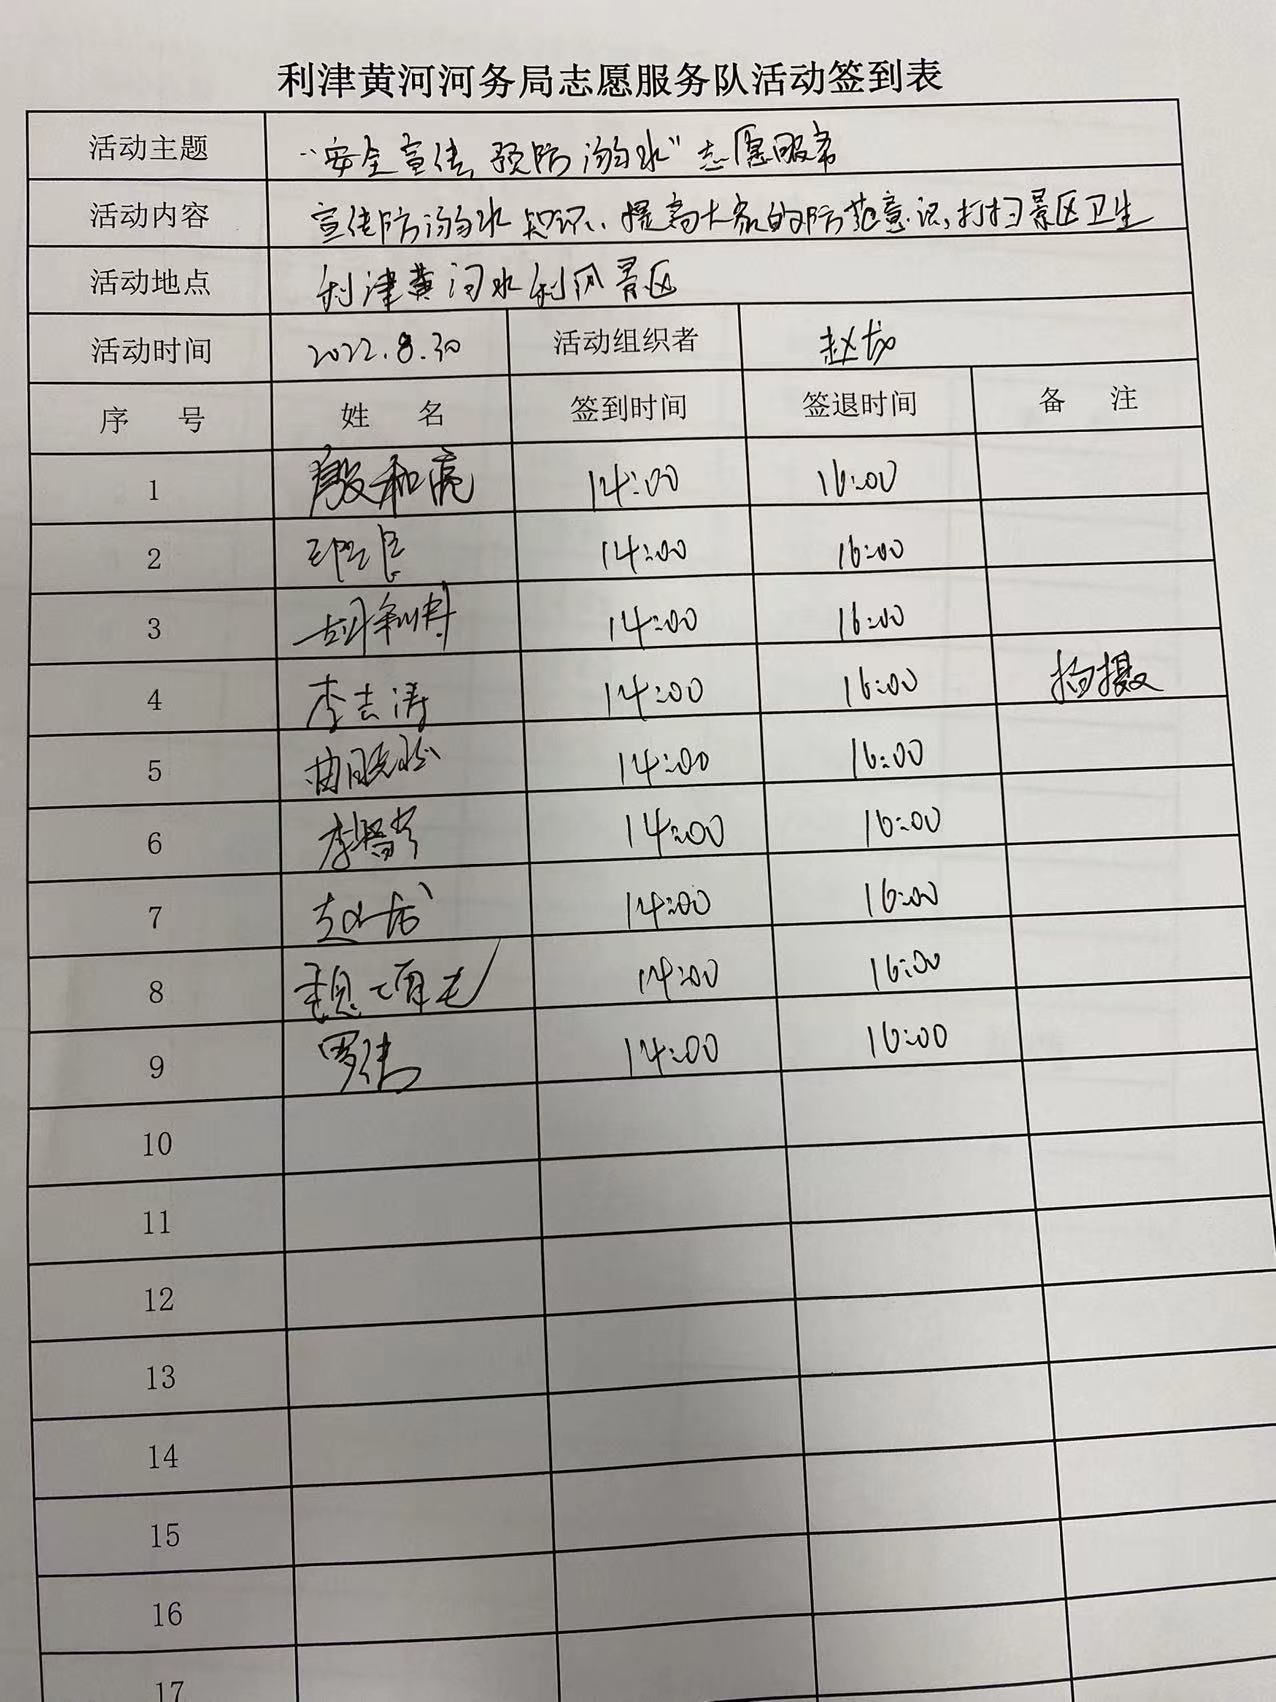 利津黄河河务局志愿服务队活动签到表
活动主题 “安全宣传,预防溺水”志愿服务
活动内容 宣传防溺水知识、提高大家的防范意识,打扫景区卫生
活动地点 利津黄河水利风景区
活动时间 2022.8.30 活动组织者 赵龙
序 号 姓 名 签到时间 签退时间 备 注
1 殷和亮 14:00 16:00
2 14:00 16:00
3 胡利 14:00 16:00
4 李志涛 14:00 16:00 拍摄
5 曲晓 14:00 16:00
6 李 14:00 16:00
7 赵龙 14:00 16:00
8 14:00 16:00
9 罗倩 14:00 16:00
10
11
12
13
14
15
16
17